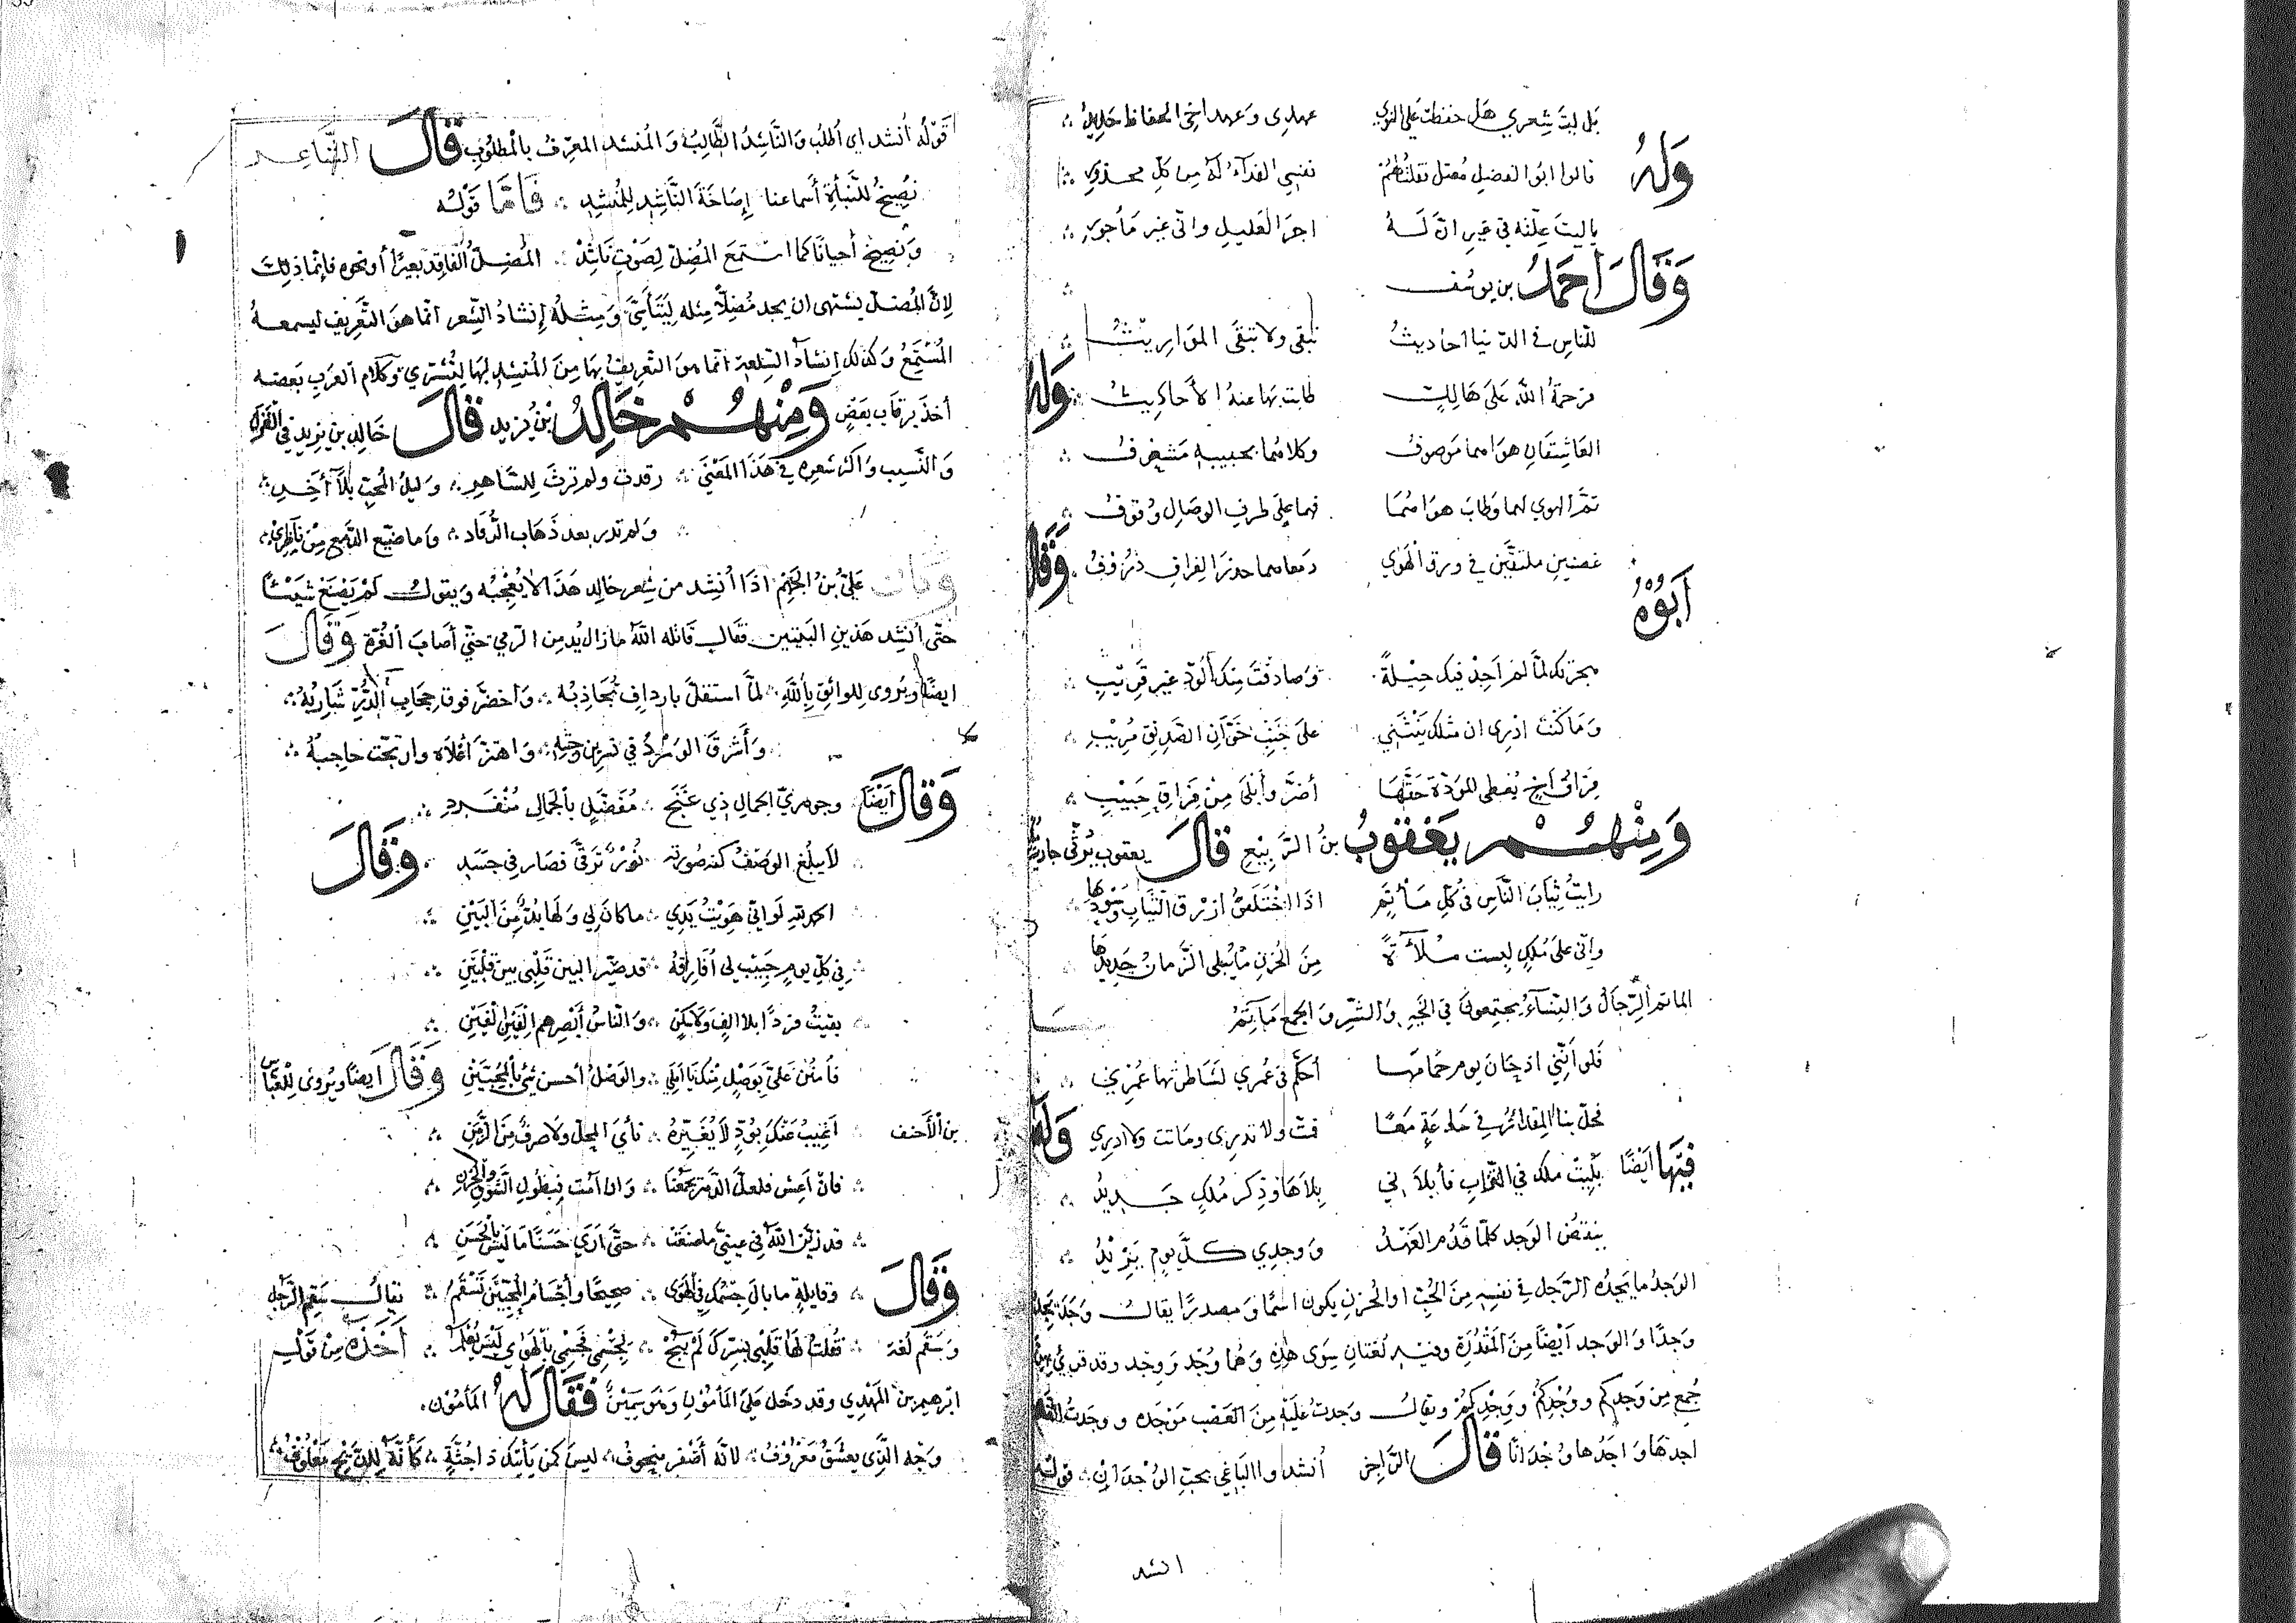 بَل ليتَ شِعري هَل حفظت علي النوي عهدي وَعهد اخي الحفاظ جَديدُ
وَلَهُ
قالوا ابُو الفضلِ مُعتل فقلتُ لهُمْ نفسِي الفدآءُ لَهُ مِن كلِّ محذورِ
ياليتَ عِلّته بي غيرِ انّ لَــهُ اجرَ العَليلِ واني غير مَأجورِ
وَقَالَ أحمَدُ بن يوسف
للناسِ في الدّنيا احاديثُ تبقى ولا تبقَى المَوَارِيثُ
فرَحمَةُ اللهِ عَلى هَالِكٍ طابت بهَا عنهُ الأحَاديثُ وَلَهُ
العَاشِقَانِ هوَاهما مَوصوفُ وكلاهُما بحبيبهِ مَشغوفُ
تمَّ الهوي لهما وَطابَ هوَاهُمَا فهما عَلى طرفِ الوصَالِ وُقوفُ
غصنينِ ملتفّين في ورق الهَوي دمعاهما حذرَ الفراقِ ذرُوفُ وَقَالَ
أَبُوْهُ
هجرتكَ لمَّا لم اَجِدْ فيكَ حِيْلةً وَصادفْتَ مِنكَ الودَّ غير قرِيْبِ
وَمَا كُنْتُ ادرِي ان مثلك يَنْثَنِي عَلى خَوّانِ الصّديق مُرِيْبِ
فِرَاقُ اَخٍ يُعْطي المَوَدّة حَقَّهَا أضرُّ وأبْلَى مِنْ فِرَاقِ حَبِيْبِ
وَمِنْهُـمْ يَعْقوبُ بنُ الرَّبِيْعِ قَالَ يعقوب يُرثي جاريتهُ
رايتُ ثِيَابَ النّاسِ في كُلِّ مَأتَمٍ اذَا اخْتَلفَتْ ازرق الثيَابِ وَسُودهَا
وانّي عَلى مُلكٍ لبست مُلَآءَةً مِنَ الحُزنِ مَا يُبلِى الزَّمانُ جَدِيدَهَا
الماتم الرِّجَالُ وَالنِّسَآءُ يجتمِعونَ في الخَيرِ وَالشَّرِّ وَ الجمع مَآتِمُ
فَلوا أنّني اذ حَانَ يوم حمَامهَا أحكّم في عُمري لشَاطرتُها عُمْرِي
فحلّ بنا المقدارُ في سَاعَةٍ مَعًا فمتّ ولا تدرِي وماتت ولا ادرِي وَلَهُ
فِيْهَا ايَضًا بَلِيْتْ ملك في التّرابِ فأبلاَنِي بِلاَهَا وَذِكر مُلكٍ جَـدِيدُ
ينقصُ الوَجد كلّمَا قَدُم العَهْدُ وَوَجدِي كـلّ يومٍ يَزِيْدُ
الوَجدُ ما يجدُه الرّجل في نفسِهِ مِنَ الحُبّ اوالحُزن يكون اسمًا وَمصدرًا يقالُ وَجَدَ يَجِدُ
وَجدًا وَ الوَجد اَيْضًا مِنَ المَقْدُرَةِ وفيـهِ لغتانِ سِوَى هذِهِ وَهُما وُجْد وَوِجْد وقد قرِئ
جُمع مِن وَجدكم وَوُجْدِكمْ وَوِجْدِكمْ ويقالُ وَجدتُ عَليْهِ مِنَ الغَضب مَوْجَدَه ووجَدتُ
اجدهَا وَ اجدُها وُجْدَانًا قَالَ الرّاجز أنشد واالبَاغي يحبّ الوِجْدَانْ قولـه
انشد
قوْلُه أنشد اي اطلبُ وَالنَّاشِدُ الطَّالِبُ وَالمُنشد المعَرّفُ بالمَطلوبِ قَالَ الشّاعِــر
نُصِيْخُ للنَّبأَةِ أَسماعنا إِصَاخَةَ النَّاشِدِ لِلمُنشِدِ فَامَّا قَوْلـه
وَنصِيخُ احيانًا كَمَا اسْتمَعَ المُضِلّ لِصَوْتِ نَاشِدْ المُضِلّ الفَاقِدُ بعيْرًا أو نحوه فإنما ذلكَ
لِأنّ المُضلّ يشتهى ان يجد مُضِلّاً مثله لِيَتَأَسَّى وَمِثـلُه إِنشادُ الشّعر انّما هوَ التّعريف ليسمعهُ
المُسْتمعُ وَكذلك إنشآدُ السّلعةِ انّما هوَ التّعريفُ بهَا مِنَ المُنشِدِ لهَا لِتُشْتري وَكلَام العَربِ بَعضه
أخذ برقَابِ بَعْضٍ وَمِنْهُـمْ خَالِدُ بْن يَزيد قَالَ خَالِد بن يزيد في الغَزَلِ
وَالنّسيب وأكثر شعره في هَذَا المَعْنَى رقدت ولم ترثَ لِلسَّاهِرِ وَليلُ المُحبّ بلَا آخِرِ
وَلم تدر بعد ذَهَاب الرّقاد وَما ضيّع الدّمع مِنْ نَاظِرِي
وَكَانَ عَليّ بنُ الجَهْم اذَا أنشِد من شِعرِ خالد هَذَا لا يُعْجِبُه وَيقولُ لَمْ يَصْنَعْ شَيْئًا
حتّى أنشِد هَذينِ البَيتين فقال قاتله اللّه مَازال يُدمِن الرّمي حتّى أصَابَ الغُرّة وَقَالَ
ايضًا وَيُروى لِلواثِقِ بِاللّهِ لمّا استقلّ بارداف تُجَاذِبُه وَاخضرّ فوقَ حِجَابِ الدُّرِّ شَارِبُهُ
وَأَشرقَ الوَرْدُ في نسرِين وَجنتهِ وَاهتزّ اَعْلَاه وارتجّت حاجبهُ
وَقَالَ اَيْضًا وجوهرِيّ الجمال ذِي غَنَجٍ مُفضّلٍ بالجَمَالِ مُنْفَـردِ
لاَيبلُغ الوَصْفُ كنه صُورته نُوْرٌ تَرقّى فصَار في جَسَدِ وَقَالَ
الحمدلله لَو انّي هَوِيْتُ يَدِي ماكانَ لي وَلهَا بدٌّ مِنَ البَيْنِ
في كلّ يومٍ حَبِيْب لي اُفَارِقُهُ قد صَيّر البين قلبِي بين قَلْبَيْنِ
بقيْتُ فردًا بلا الفٍ وَلَا سَكنٍ وَالناسُ أبْصِرهم اِلْفَيْنِ الْفَيْنِ
فَامنُنْ عَلَيّ بوَصْلٍ مِنكَ يَا اَملِي وَالوَصْلُ أحسن شئ بِالمُحِبّينِ وَقَالَ اَيضًا وَيُروى للعَبّاسِ
بن الأحنف اَغيبُ عَنكَ بوُدٍّ لاَ يُغَيّرهُ نأيُ المحلّ وَلَا صرفٌ مِنَ الزَّمَنِ
فانْ اَعِش فلعلّ الدّهرَ يَجْمَعُنَا وَان اَمُت فبطُولِ الشّوقِ وَالحَزَنِ
قد زيّن اللّه في عينيّ ماصَنعَتْ حتّى اَرَي حَسَنًا مَا ليسَ بِالحَسَنِ
وَقَالَ وقايلةٍ ما بالَ جِسمكَ في الهَوى صحيحًا وأجسَامُ المُحِبّيْنَ تَسْقَمُ يقالُ سَقِم الرّجل
وَسَقُم لُغة فقلتُ لهَا قَلْبِي بِسِرّكَ لَمْ يَبُحْ لِجِسْمي فَجِسْمِي بالهَوي لَيْسَ يَعْلَمُ أخَذَه مِن قَوْلِ
ابرهِيم بن المَهْدِي وقد دخَل علَى المَأموْنِ وَهوَ سَمِيْنٌ فَقَالَ لَهُ المَأمُون
وَجْه الّذِي يعشَقُ مَعْرُوْفُ لانّه أصْفر مَنحوفُ ليسَ كمَن يَأتيكَ ذا جُثَّةٍ كَأنَّهُ لِلذَّبْحِ مَعْلُوْفُ